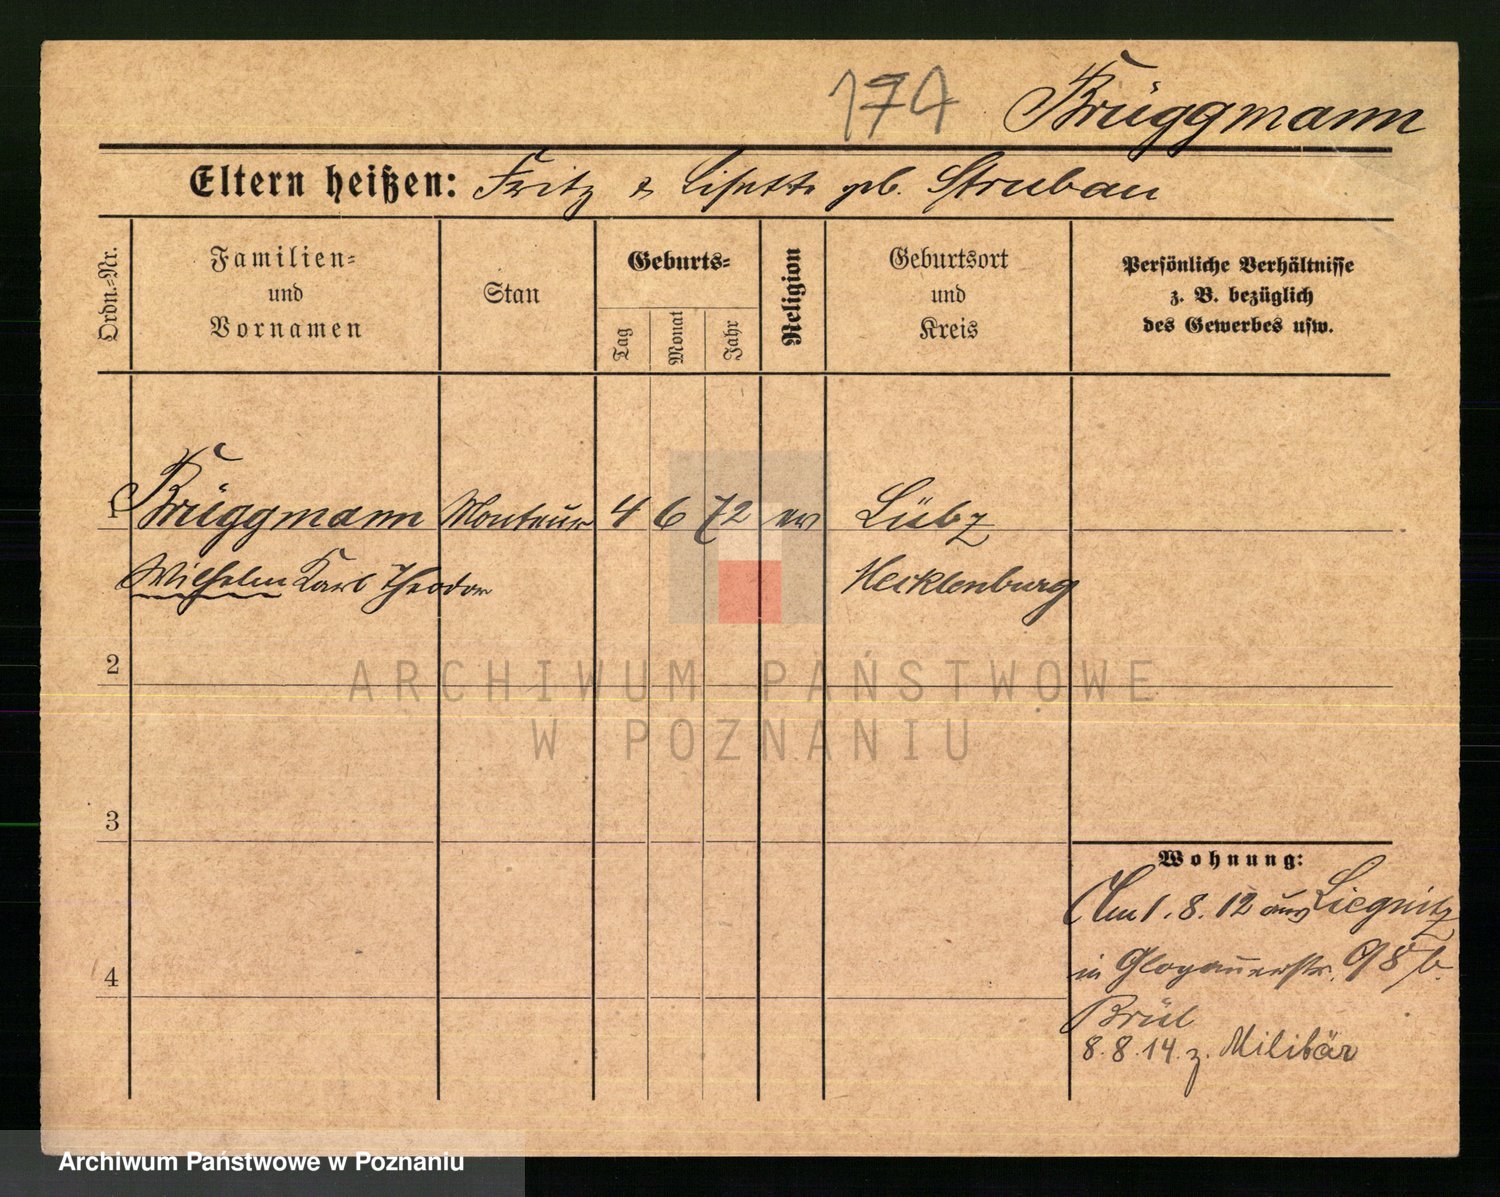 174 Brüggmann
Eltern heißen: Fritz & Lisette geb. Strubau
Ordn.=Nr.
Familien=
und
Vornamen
Stan
Geburts=
Tag
Monat
Jahr
Religion
Geburtsort
und
Kreis
Persönliche Verhältnisse
z. B. bezüglich
des Gewerbes usw.
1 Brüggmann Monteur 4 6 72 ev Lübz
Wilhelm Karl Theodor Mecklenburg
2
ARCHIWUM PAŃSTWOWE
W POZNANIU
3
Wohnung:
Am 1.8.12 aus Liegnitz
4
in Glogauerstr. 98 b.
Brül
8.8.14. z. Militär
Archiwum Państwowe w Poznaniu